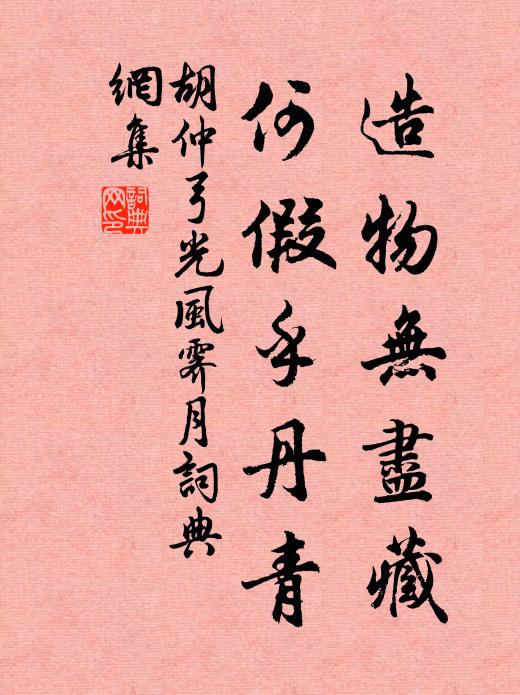 造物無盡藏
何假乎丹青
胡仲弓光風霽月詞典
網集
詞典
网印